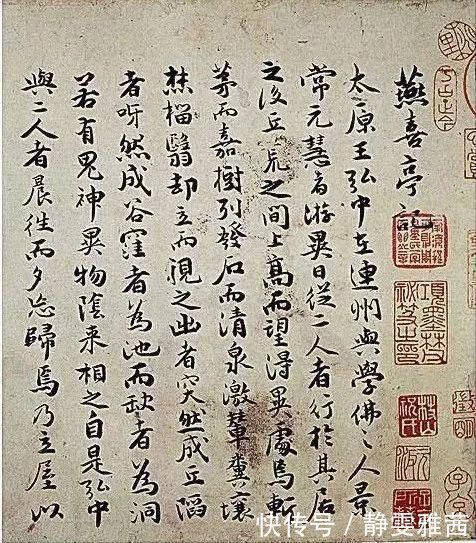 燕喜亭記
太原王弘中在連州與學佛〻人景
常元慧者游異日從二人者行於其居
之後丘荒之間上高而望得異處焉斬
茅而嘉樹列發石而清泉激輦糞壤
焚榴翳却立而視之出者突然成丘陷
者呀然成谷窪者為池而缺者為洞
若有鬼神異物陰来相之自是弘中
與二人者晨往而夕忘歸焉乃立屋以
項墨林祕笈之印
快传号 / 静雯雅茜